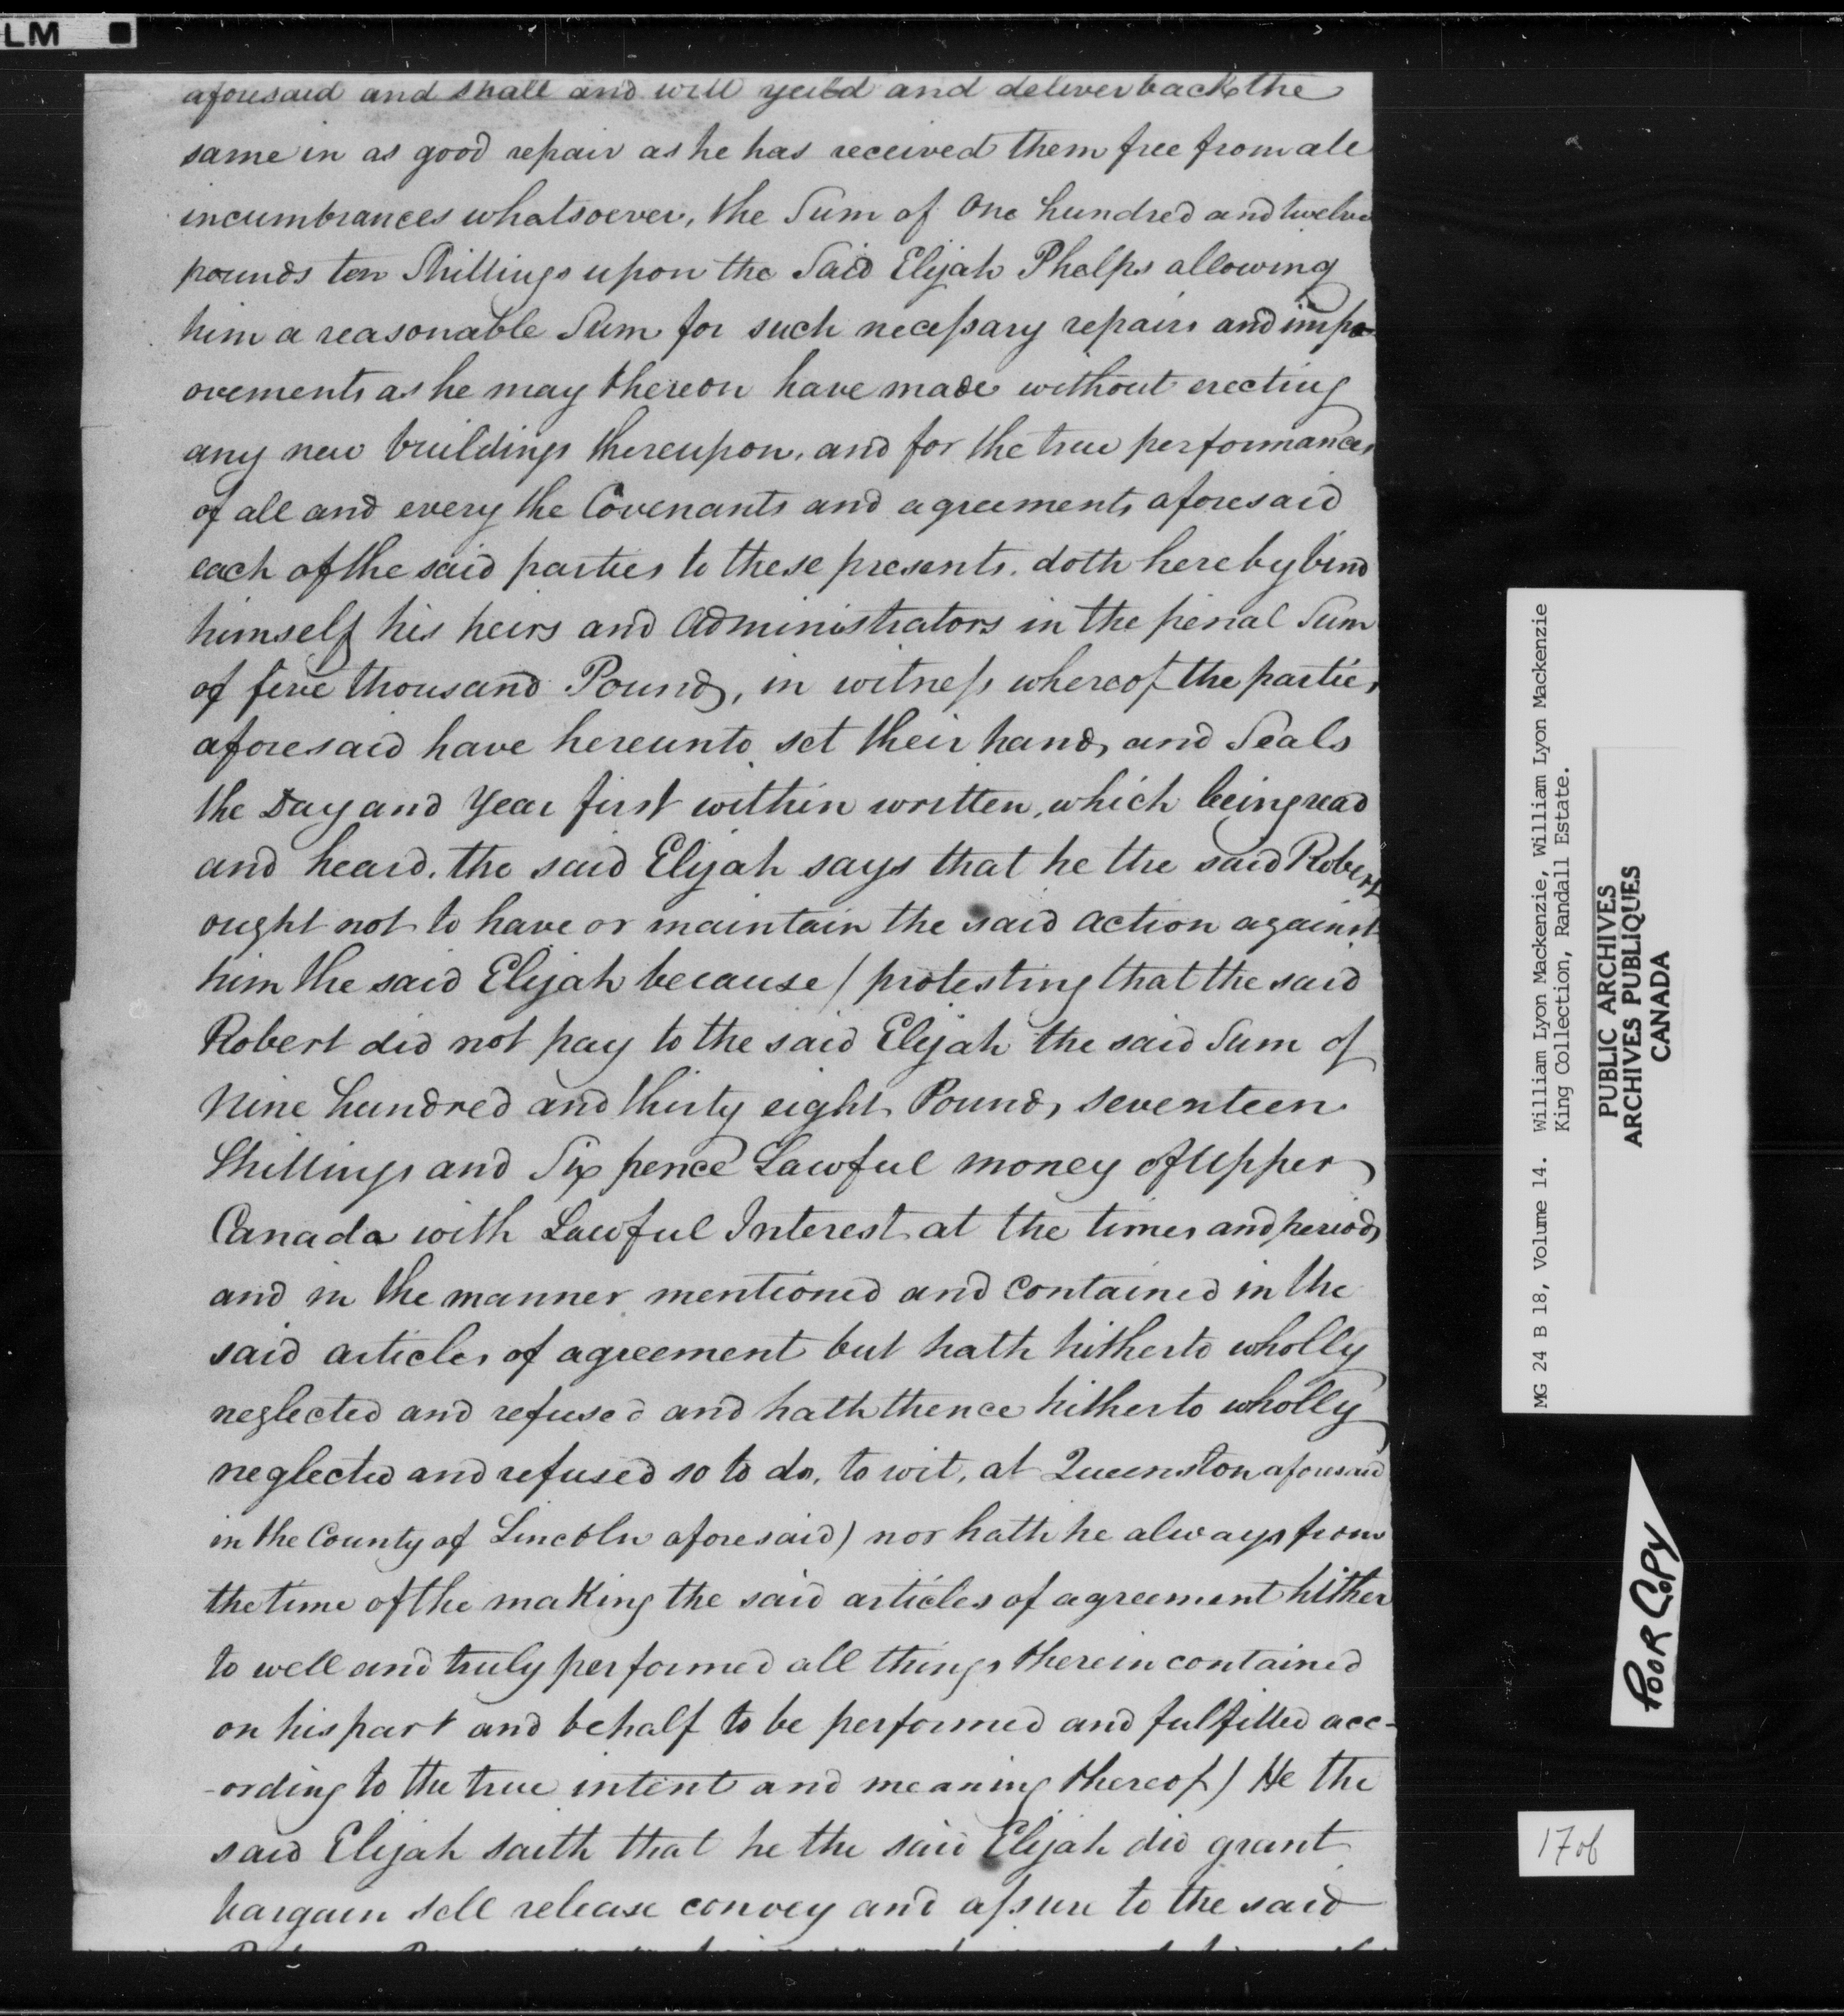 LM
aforesaid and shall and will yeild and deliver back the
same in as good repair as he has received them free from all
incumbrances whatsoever, the Sum of One hundred and twelve
pounds ten Shillings upon the Said Elijah Phelps allowing
him a reasonable Sum for such necessary repairs and impr-
ovements as he may thereon have made without erecting
any new buildings thereupon, and for the true performances
of all and every the Covenants and agreements aforesaid
each of the said parties to these presents. doth hereby bind
himself his heirs and administrators in the penal Sum
of five thousand Pounds, in witness whereof the parties
aforesaid have hereunto set their hands and Seals
the Day and Year first within written, which being read
and heard. the said Elijah says that he the said Robert
ought not to have or maintain the said action against
him the said Elijah because / protesting that the said
Robert did not pay to the said Elijah the said Sum of
Nine hundred and thirty eight Pounds seventeen
Shillings and Six pence Lawful money of Upper
Canada with Lawful Interest at the times and periods
and in the manner mentioned and contained in the
said articles of agreement but hath hitherto wholly
neglected and refused and hath thence hitherto wholly
neglected and refused so to do, to wit, at Queenston aforesaid
in the County of Lincoln aforesaid) nor hath he always from
the time of the making the said articles of agreement hither
to well and truly performed all things therein contained
on his part and behalf to be performed and fulfilled acc-
-ording to the true intent and meaning thereof) He the
said Elijah saith that he the said Elijah did grant
bargain sell release convey and assure to the said
MG 24 B 18, Volume 14. William Lyon Mackenzie, William Lyon Mackenzie
King Collection, Randall Estate.
PUBLIC ARCHIVES
ARCHIVES PUBLIQUES
CANADA
POOR COPY
17 of